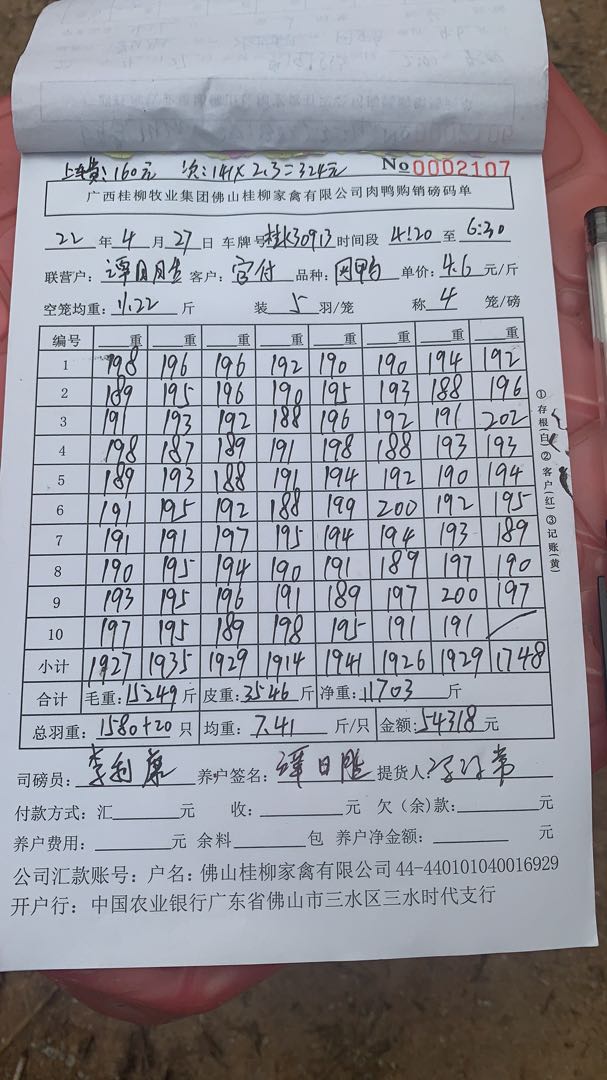 上车费:160元 次:141×2.3=324元 No 0002107
广西桂柳牧业集团佛山桂柳家禽有限公司肉鸭购销磅码单
22 年 4 月 27 日 车牌号 桂K30913 时间段 4:20 至 6:30
联营户: 谭日 客户: 官付 品种: 单价: 4.6 元/斤
空笼均重: 11.22 斤 装 5 羽/笼 称 4 笼/磅
编号 重 重 重 重 重 重 重 重
1 198 196 196 192 190 190 194 192
2 189 195 196 190 195 193 188 196
3 191 193 192 188 196 192 191 202
4 198 187 189 191 198 188 193 193
5 189 193 188 191 194 192 190 194
6 191 195 192 188 199 200 192 195
7 191 191 197 195 194 194 193 189
8 190 195 194 190 191 189 197 190
9 193 195 196 191 189 197 200 197
10 197 195 189 198 195 191 191 /
小计 1927 1935 1929 1914 1941 1926 1929 1748
合计 毛重: 15249 斤 皮重: 3546 斤 净重: 11703 斤
总羽重: 1580+20 只 均重: 7.41 斤/只 金额: 54318 元
司磅员: 李利康 养户签名: 谭日胜 提货人:
付款方式: 汇 元 收: 元 欠(余)款: 元
养户费用: 元 余料 包 养户净金额: 元
公司汇款账号: 户名: 佛山桂柳家禽有限公司 44-440101040016929
开户行: 中国农业银行广东省佛山市三水区三水时代支行
①存根(白)②客户(红)③记账(黄)